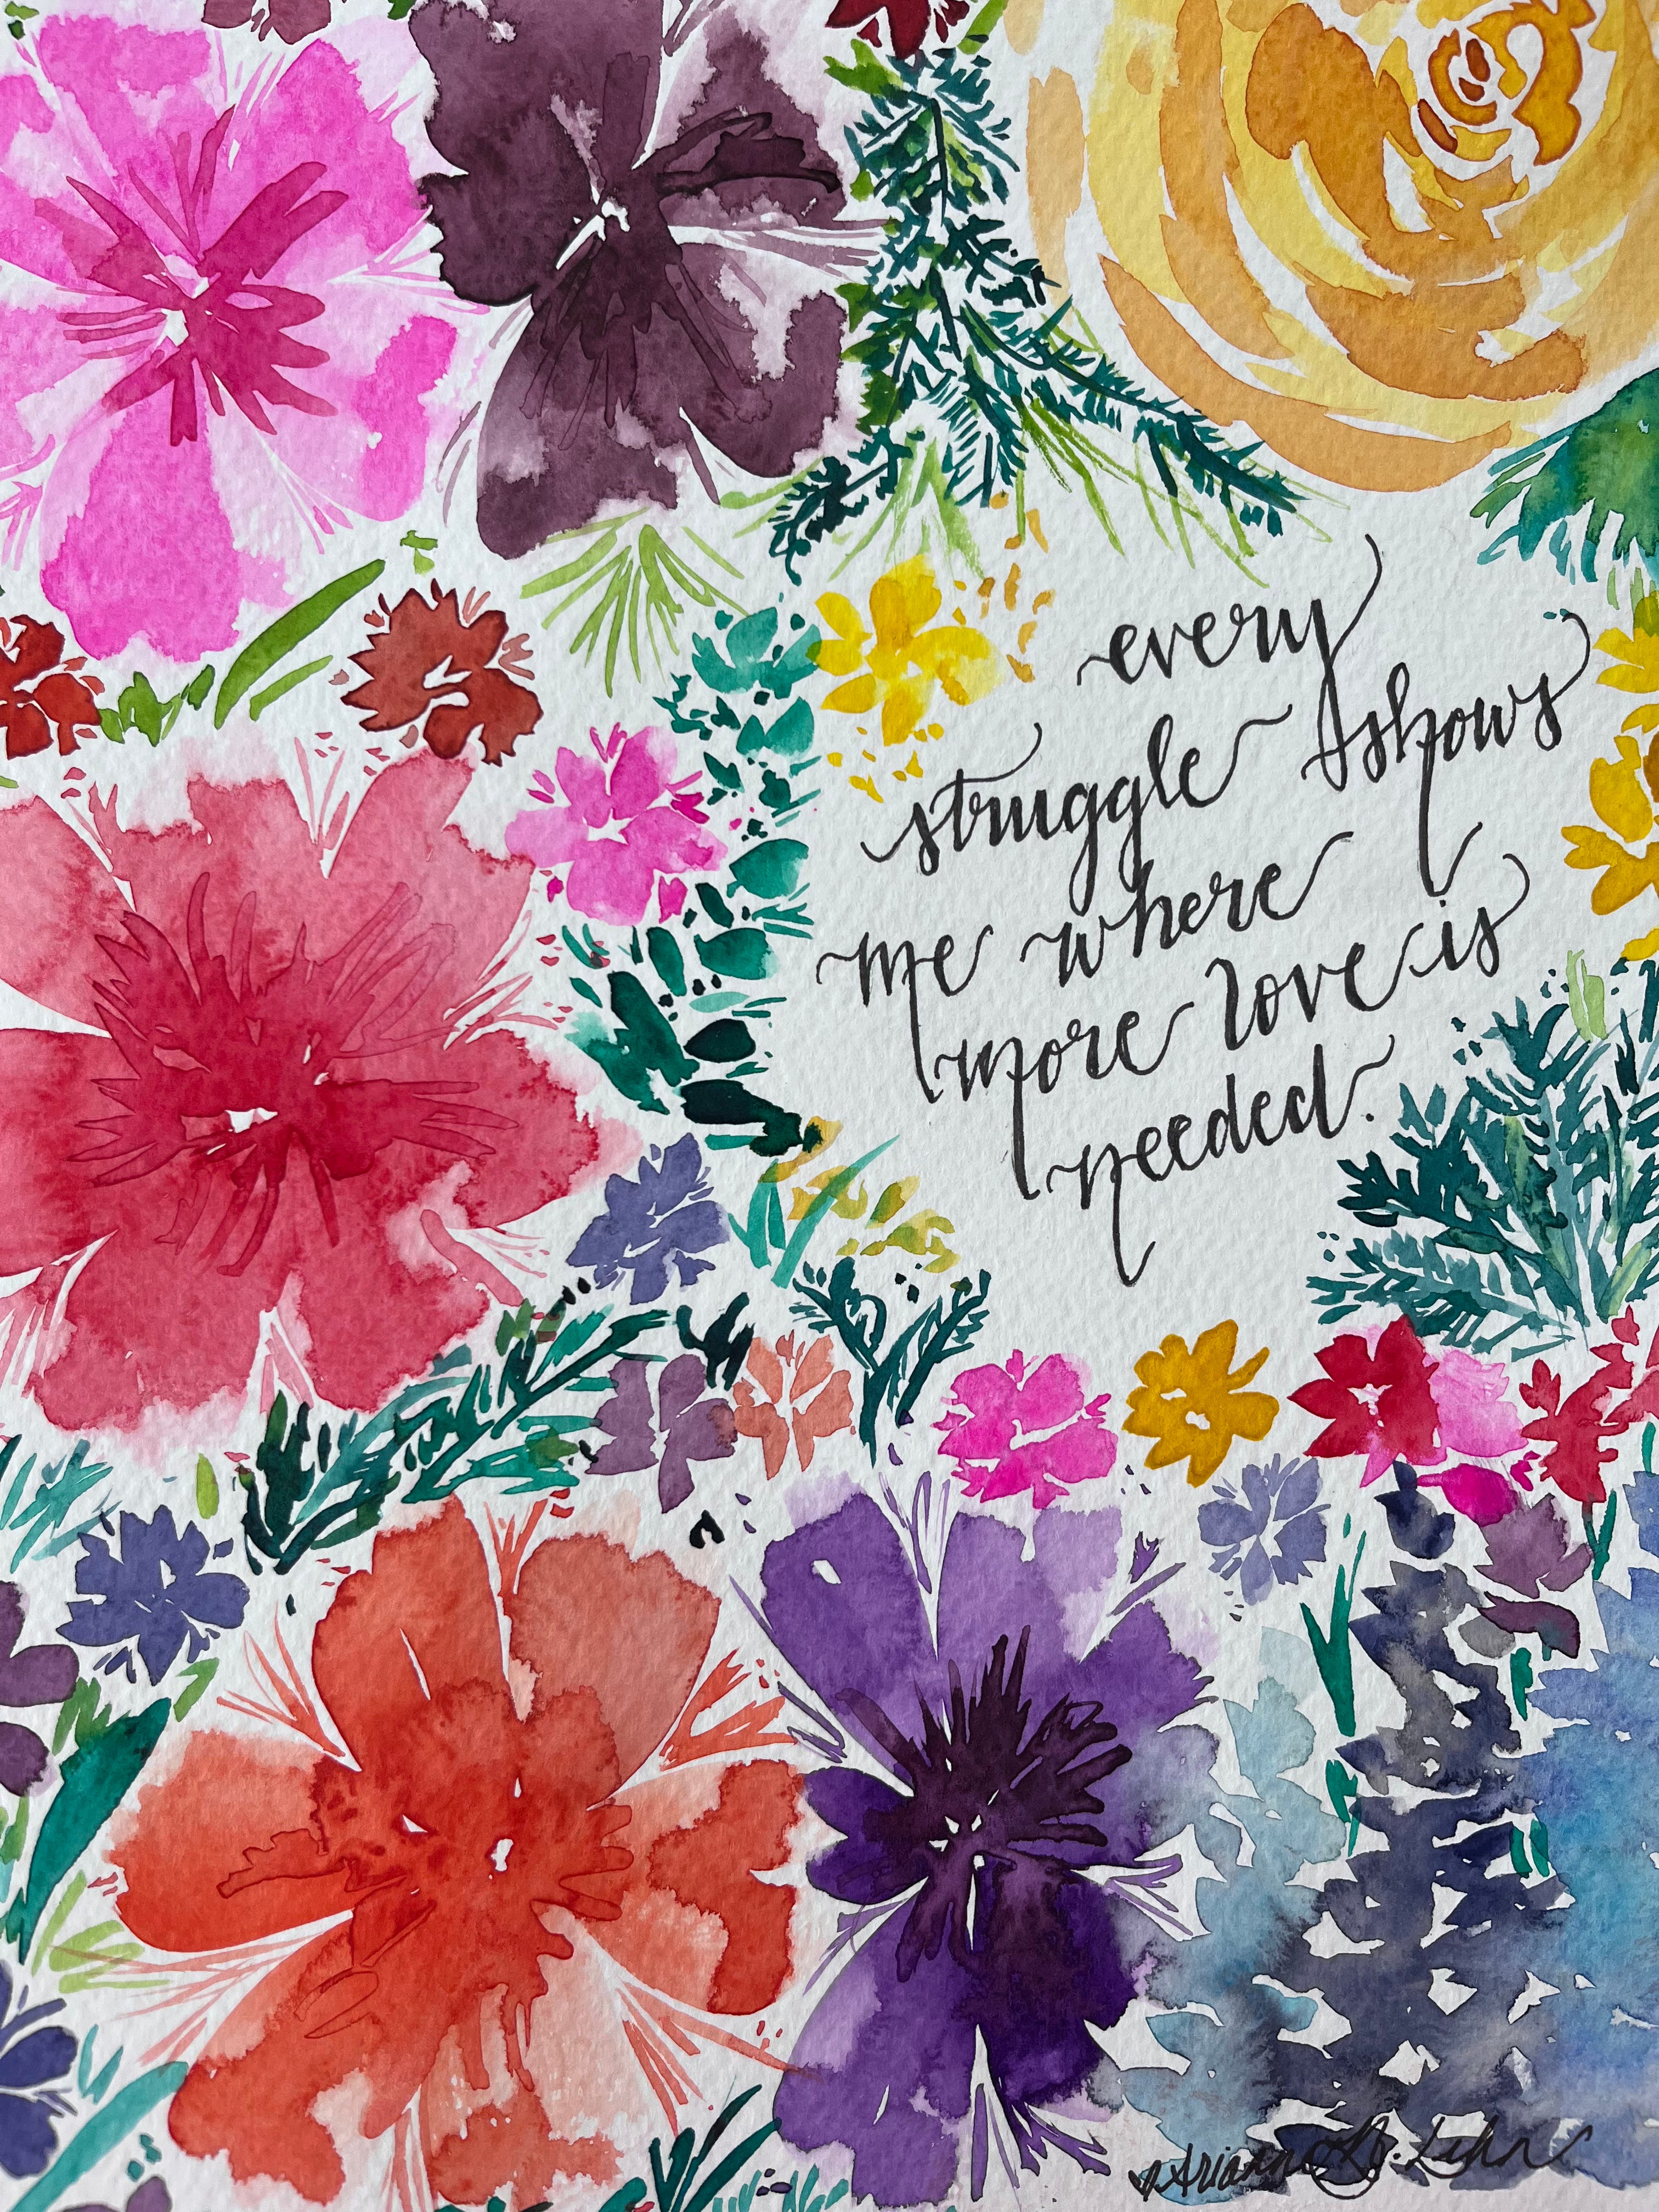 every
struggle shows
me where
more love is
needed.